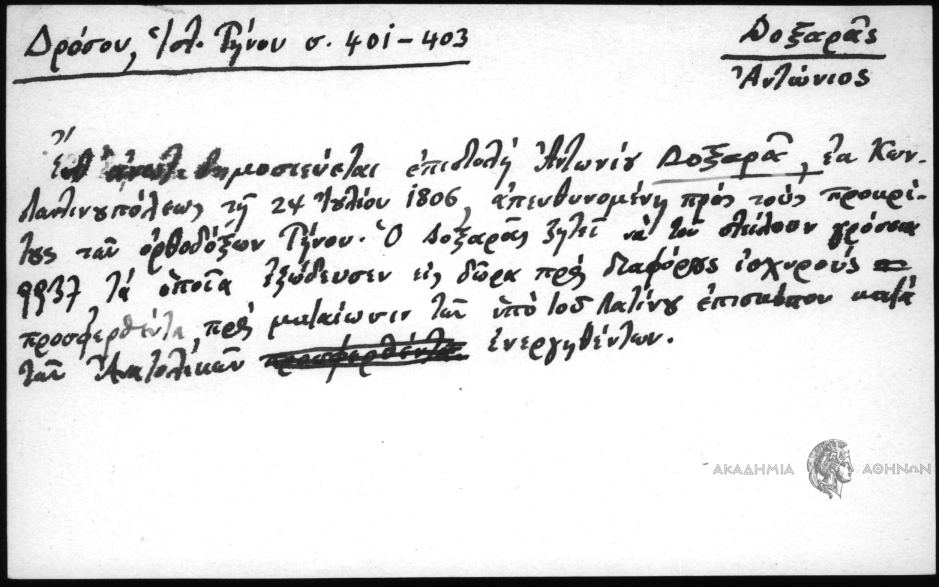 Δρόσου, Ἱστ. Τήνου σ. 401-403
Δοξαρᾶς
Ἀντώνιος
δημοσιεύεται ἐπιστολή Ἀντωνίου Δοξαρᾶ, ἐκ Κων-
σταντινουπόλεως τῇ 24 Ἰουλίου 1806, ἀπευθυνομένη πρός τούς προκρί-
τους τῶν ὀρθοδόξων Τήνου. Ὁ Δοξαρᾶς ζητεῖ νά τοῦ στείλουν γρόσσια
9937, τά ὁποῖα ἐξώδευσεν εἰς δῶρα πρός διαφόρους ἰσχυρούς
προσφερθέντα, πρός ματαίωσιν τῶν ὑπό τοῦ Λατίνου ἐπισκόπου κατά
τῶν Ἀνατολικῶν προσφερθέντα ἐνεργηθέντων.
ΑΚΑΔΗΜΙΑ ΑΘΗΝΩΝ